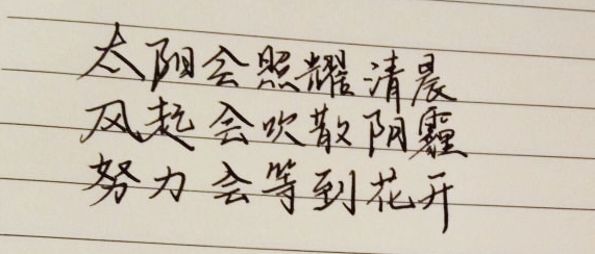 太阳会照耀清晨
风起会吹散阴霾
努力会等到花开